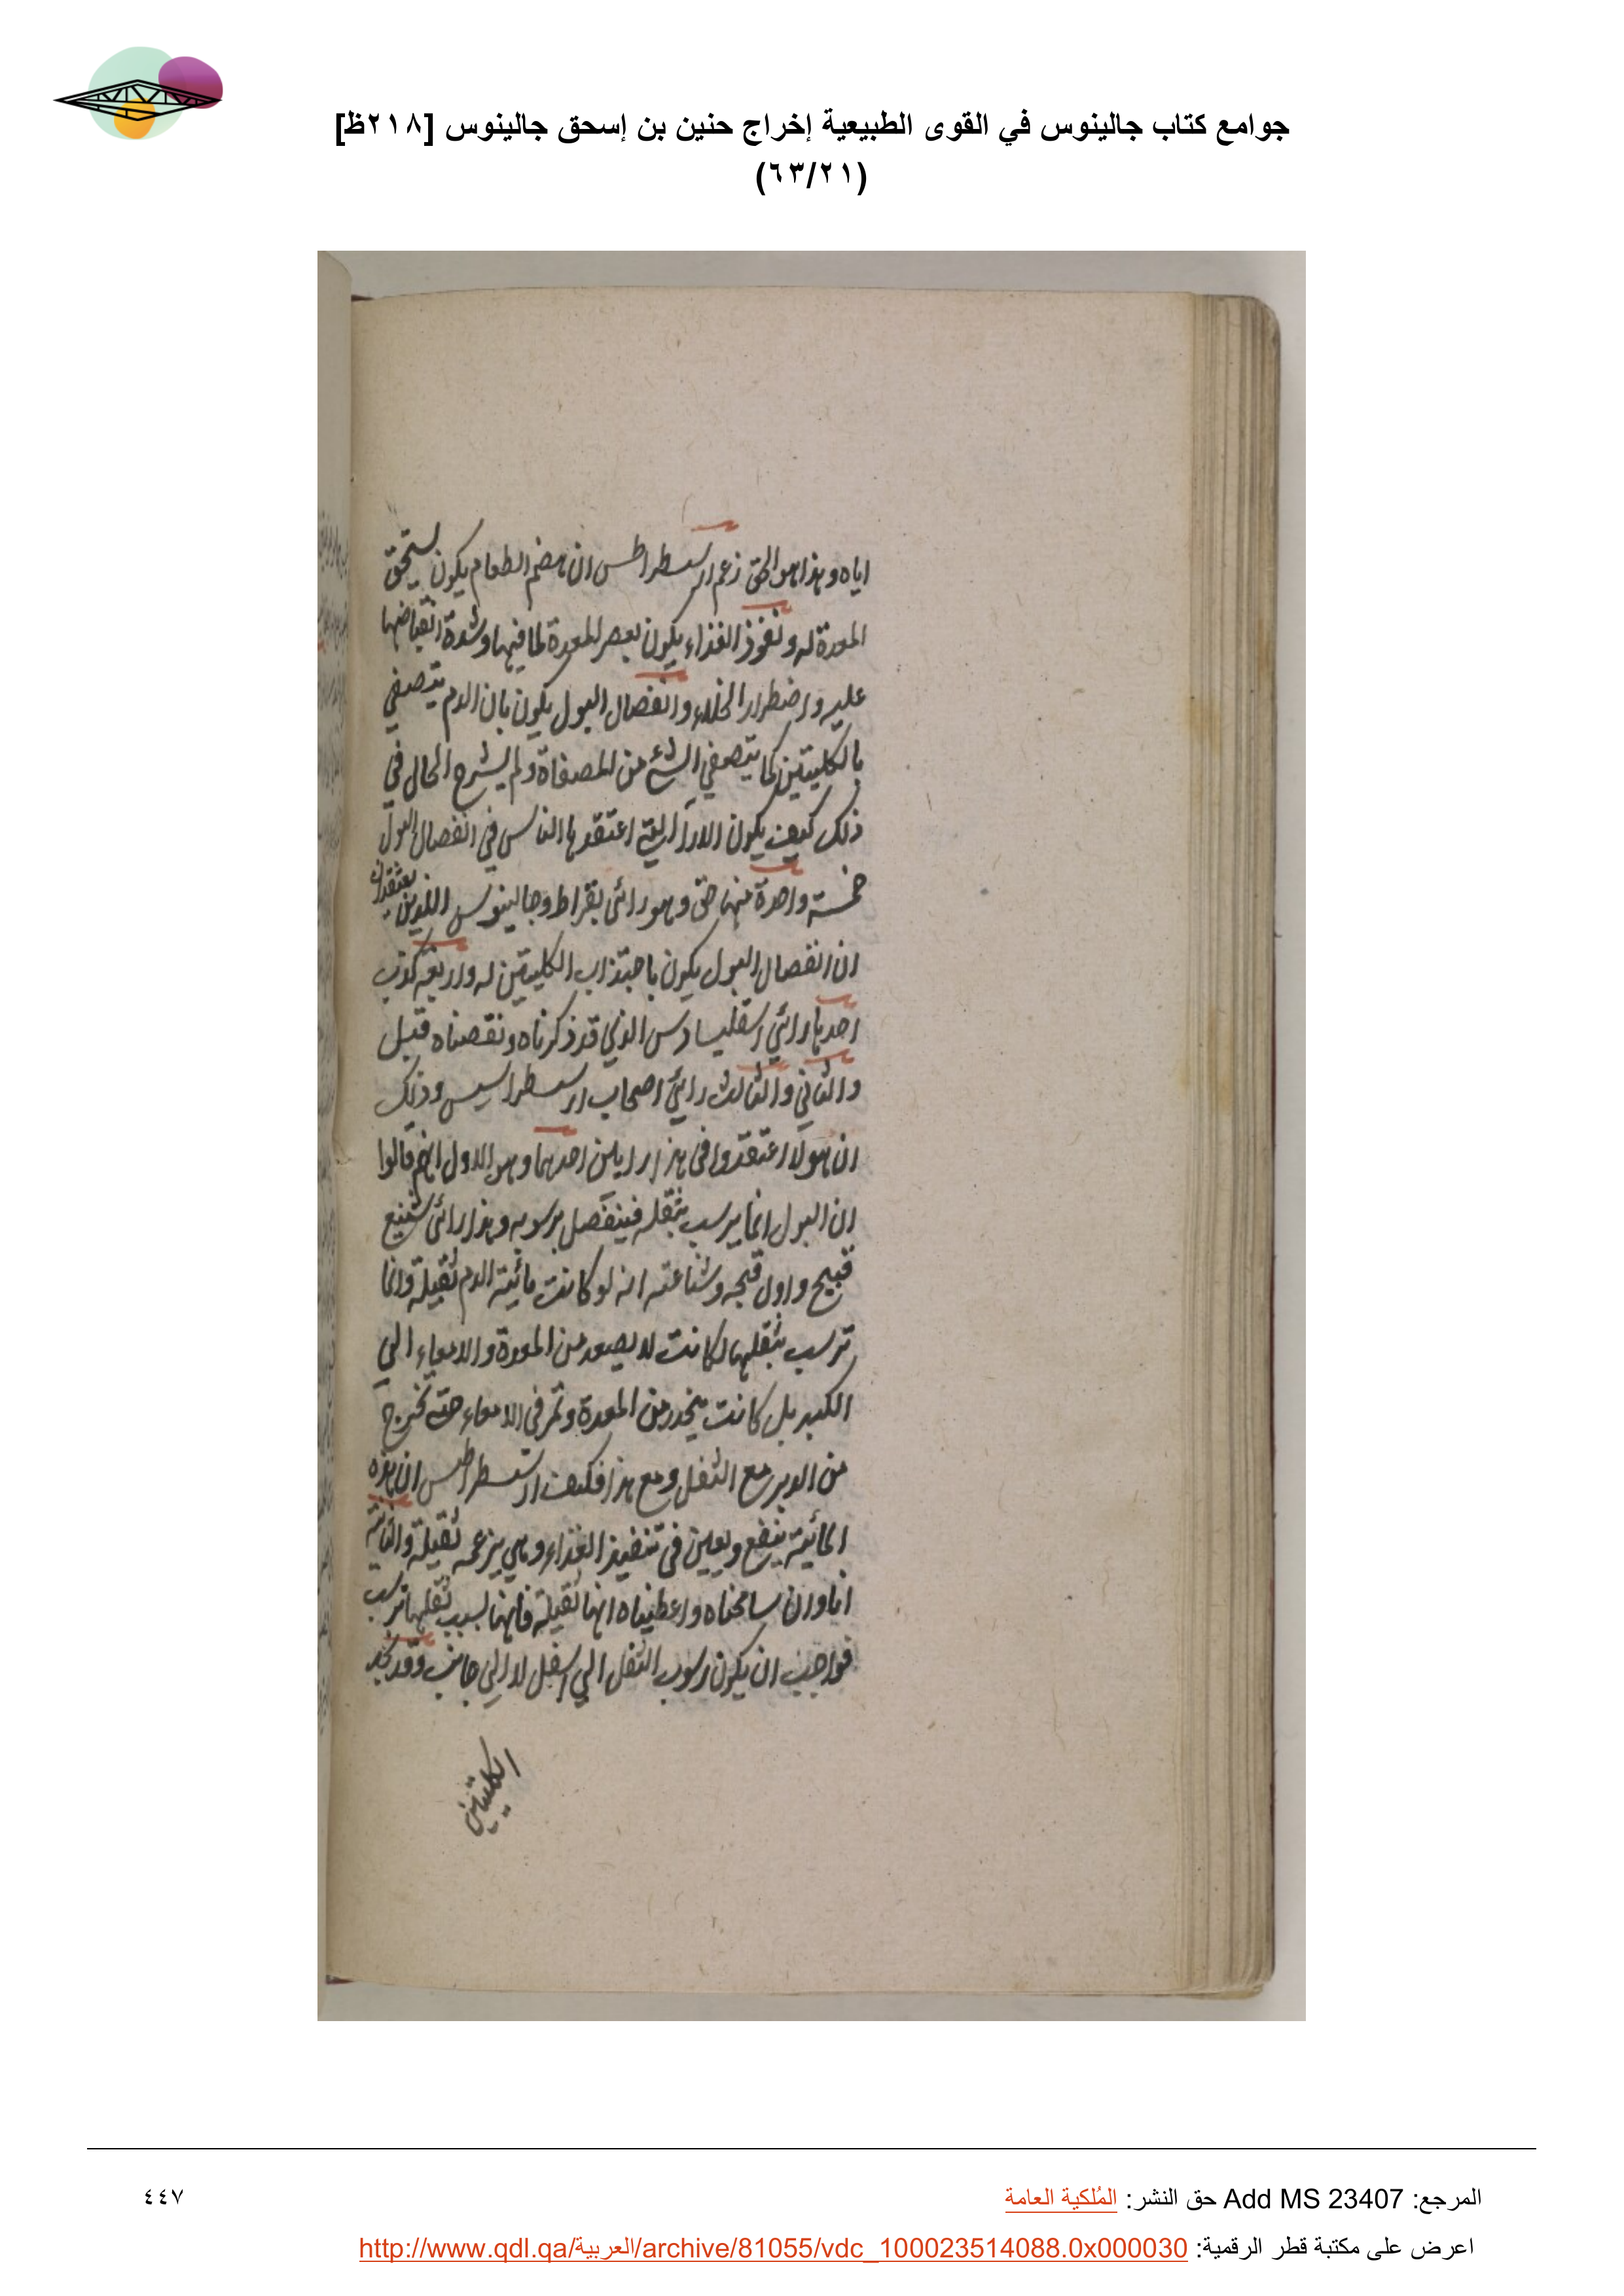 جوامع كتاب جالينوس في القوى الطبيعية إخراج حنين بن إسحق جالينوس [٢١٨ظ]
(٦٣/٢١)
اياه وهذا هو الحق زعم ارسسطراطس ان هضم الطعام يكون بسحق
المعدة له ونفوذ الغذاء يكون بعصر المعدة لما فيها وشدة انقباضها
عليه واضطرار الخلاء وانفصال البول يكون بان الدم يتصفي
بالكليتين كما يتصفي الشئ من المصفاة ولم يشرح الحال في
ذلك كيف يكون الاراآ التي اعتقدها الناس في انفصال البول
خمسة واحدة منها حق وهو رائ بقراط وجالينوس اللذين يعتقدان
ان انفصال البول يكون باجتذاب الكليتين له واربعه كذب
احدها رائي اسقليبادس الذي قد ذكرناه ونقصناه قبل
والثاني والثالث رائ اصحاب ارسسطراسيس وذلك
ان هولا اعتقدوا في هذا رايين احدهما وهو الاول انهم قالوا
ان البول انما يرسب بثقله فينفصل برسوبه وهذا رائ شنيع
قبيح واول قبحه وشناعته انه لو كانت مائية الدم ثقيلة وانما
ترسب بثقلها لكانت لا يصعد من المعدة والامعاء الي
الكبد بل كانت ينحدر من المعدة وتمر في الامعاء حتى تخرج
من الدبر مع الثفل ومع هذا فكيف ارسسطراطس ان هذه
المائية ينفع ويعين في تنفيذ الغذاء وهي بزعمه ثقيلة والثانية
انا وان سامحناه واعطيناه انها ثقيلة فانها بسبب ثقلها ترسب
فواجب ان يكون رسوب الثفل الي اسفل لا الى جانب وقد نجد
الكليتين
المرجع: Add MS 23407 حق النشر: المُلكية العامة
٤٤٧
اعرض على مكتبة قطر الرقمية: http://www.qdl.qa/العربية/archive/81055/vdc_100023514088.0x000030